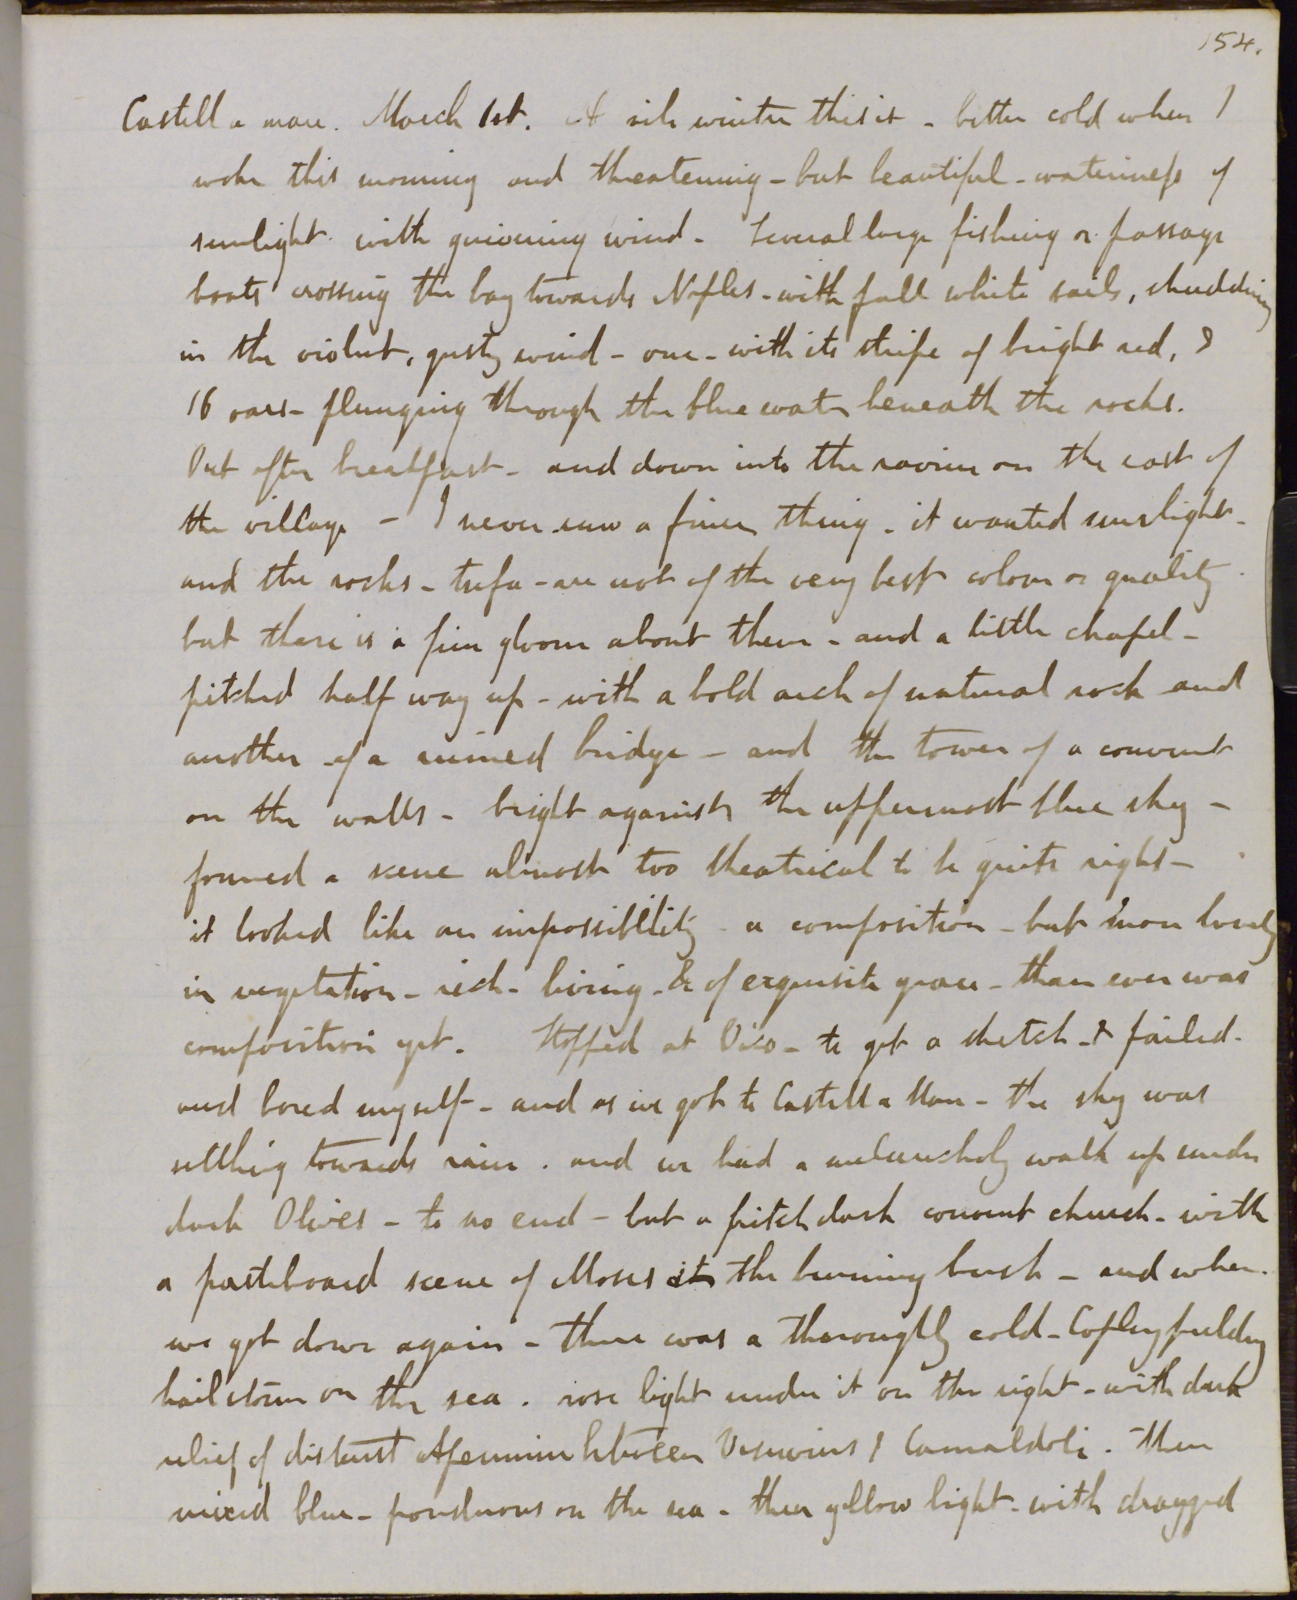 154.
Castell a mare. March 1st. A vile winter this is - bitter cold when I
woke this morning and threatening - but beautiful - wateriness of
sunlight with quivering wind - Several large fishing or passage
boats crossing the bay towards Naples - with full white sails, shuddering
in the violent, gusty wind - one - with its stripe of bright red, &
16 oars - plunging through the blue water beneath the rocks.
Out after breakfast - and down into the ravine on the east of
the village - I never saw a finer thing - it wanted sunlight -
and the rocks - tufa - are not of the very best colour or quality -
but there is a fine gloom about them - and a little chapel -
pitched half way up - with a bold arch of natural rock and
another of a ruined bridge - and the tower of a convent
on the walls - bright against the uppermost blue sky -
formed a scene almost too theatrical to be quite right -
it looked like an impossibility - a composition - but more lovely
in vegetation - rich - living - & of exquisite grace - than ever was
composition yet. Stopped at Vico - to get a sketch - & failed -
and bored myself - and as we got to Castell a Mare - the sky was
settling towards rain. and we had a melancholy walk up under
dark Olives - to no end - but a pitch dark convent church - with
a pasteboard scene of Moses at the burning bush - and when
we got down again - there was a thoroughly cold - Copley fielding
hailstorm on the sea. rose light under it on the right - with dark
relief of distant Apennine between Vesuvius & Camaldoli. Then
mixed blue - ponderous on the sea - then yellow light - with dragged